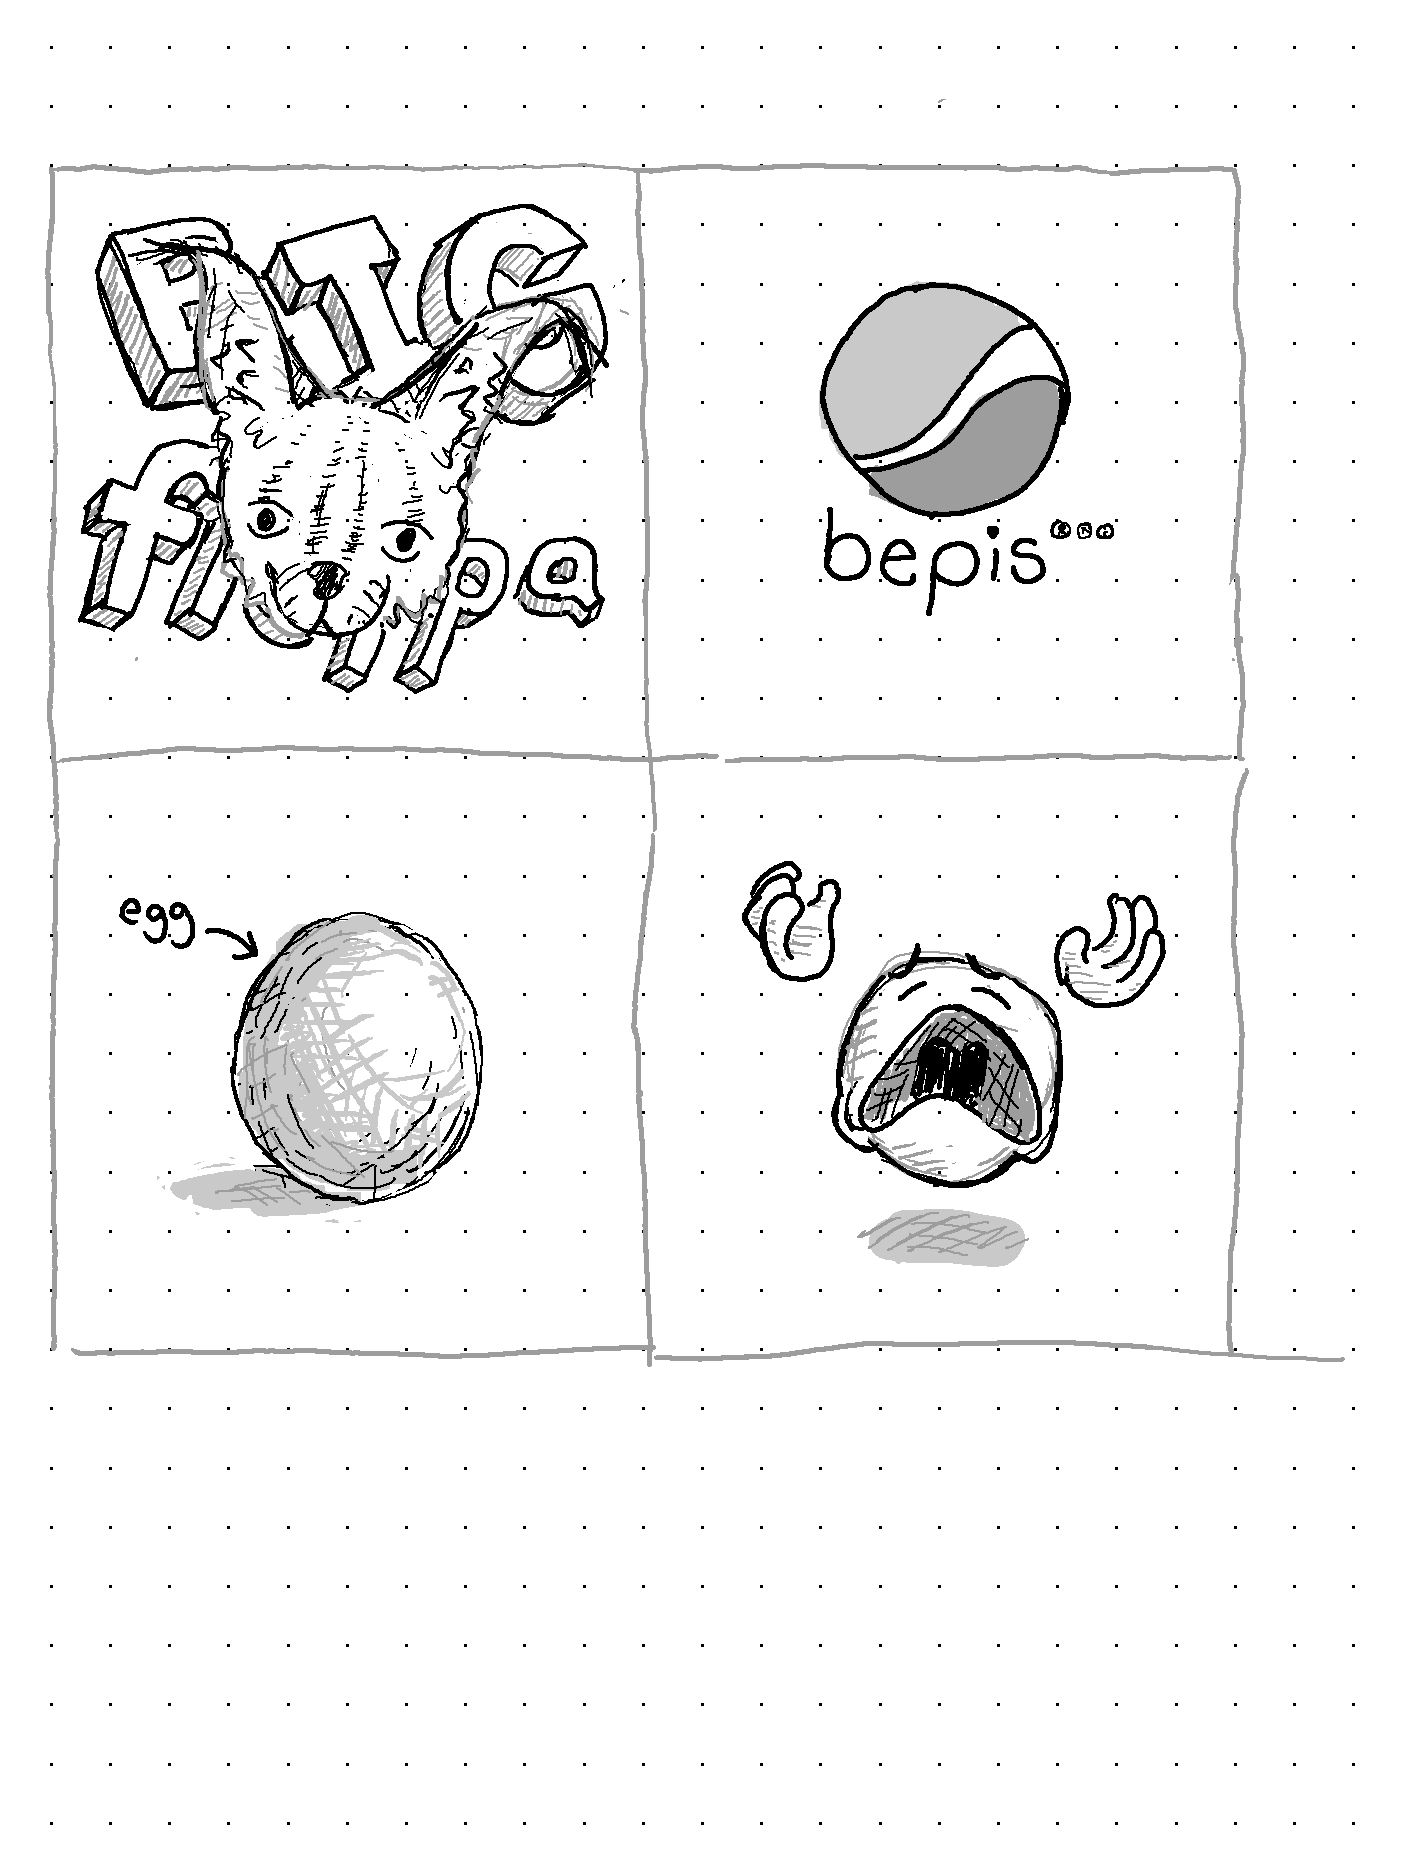 BIG
floppa
bepis
egg